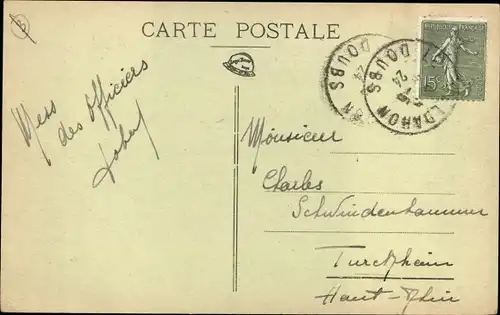 CARTE POSTALE
RÉPUBLIQUE FRANÇAISE
15c
DOUBS
24
DOUBS
24
Mess
des Officiers
Monsieur
Charles
Schwindenhammer
Turckheim
Haut-Rhin